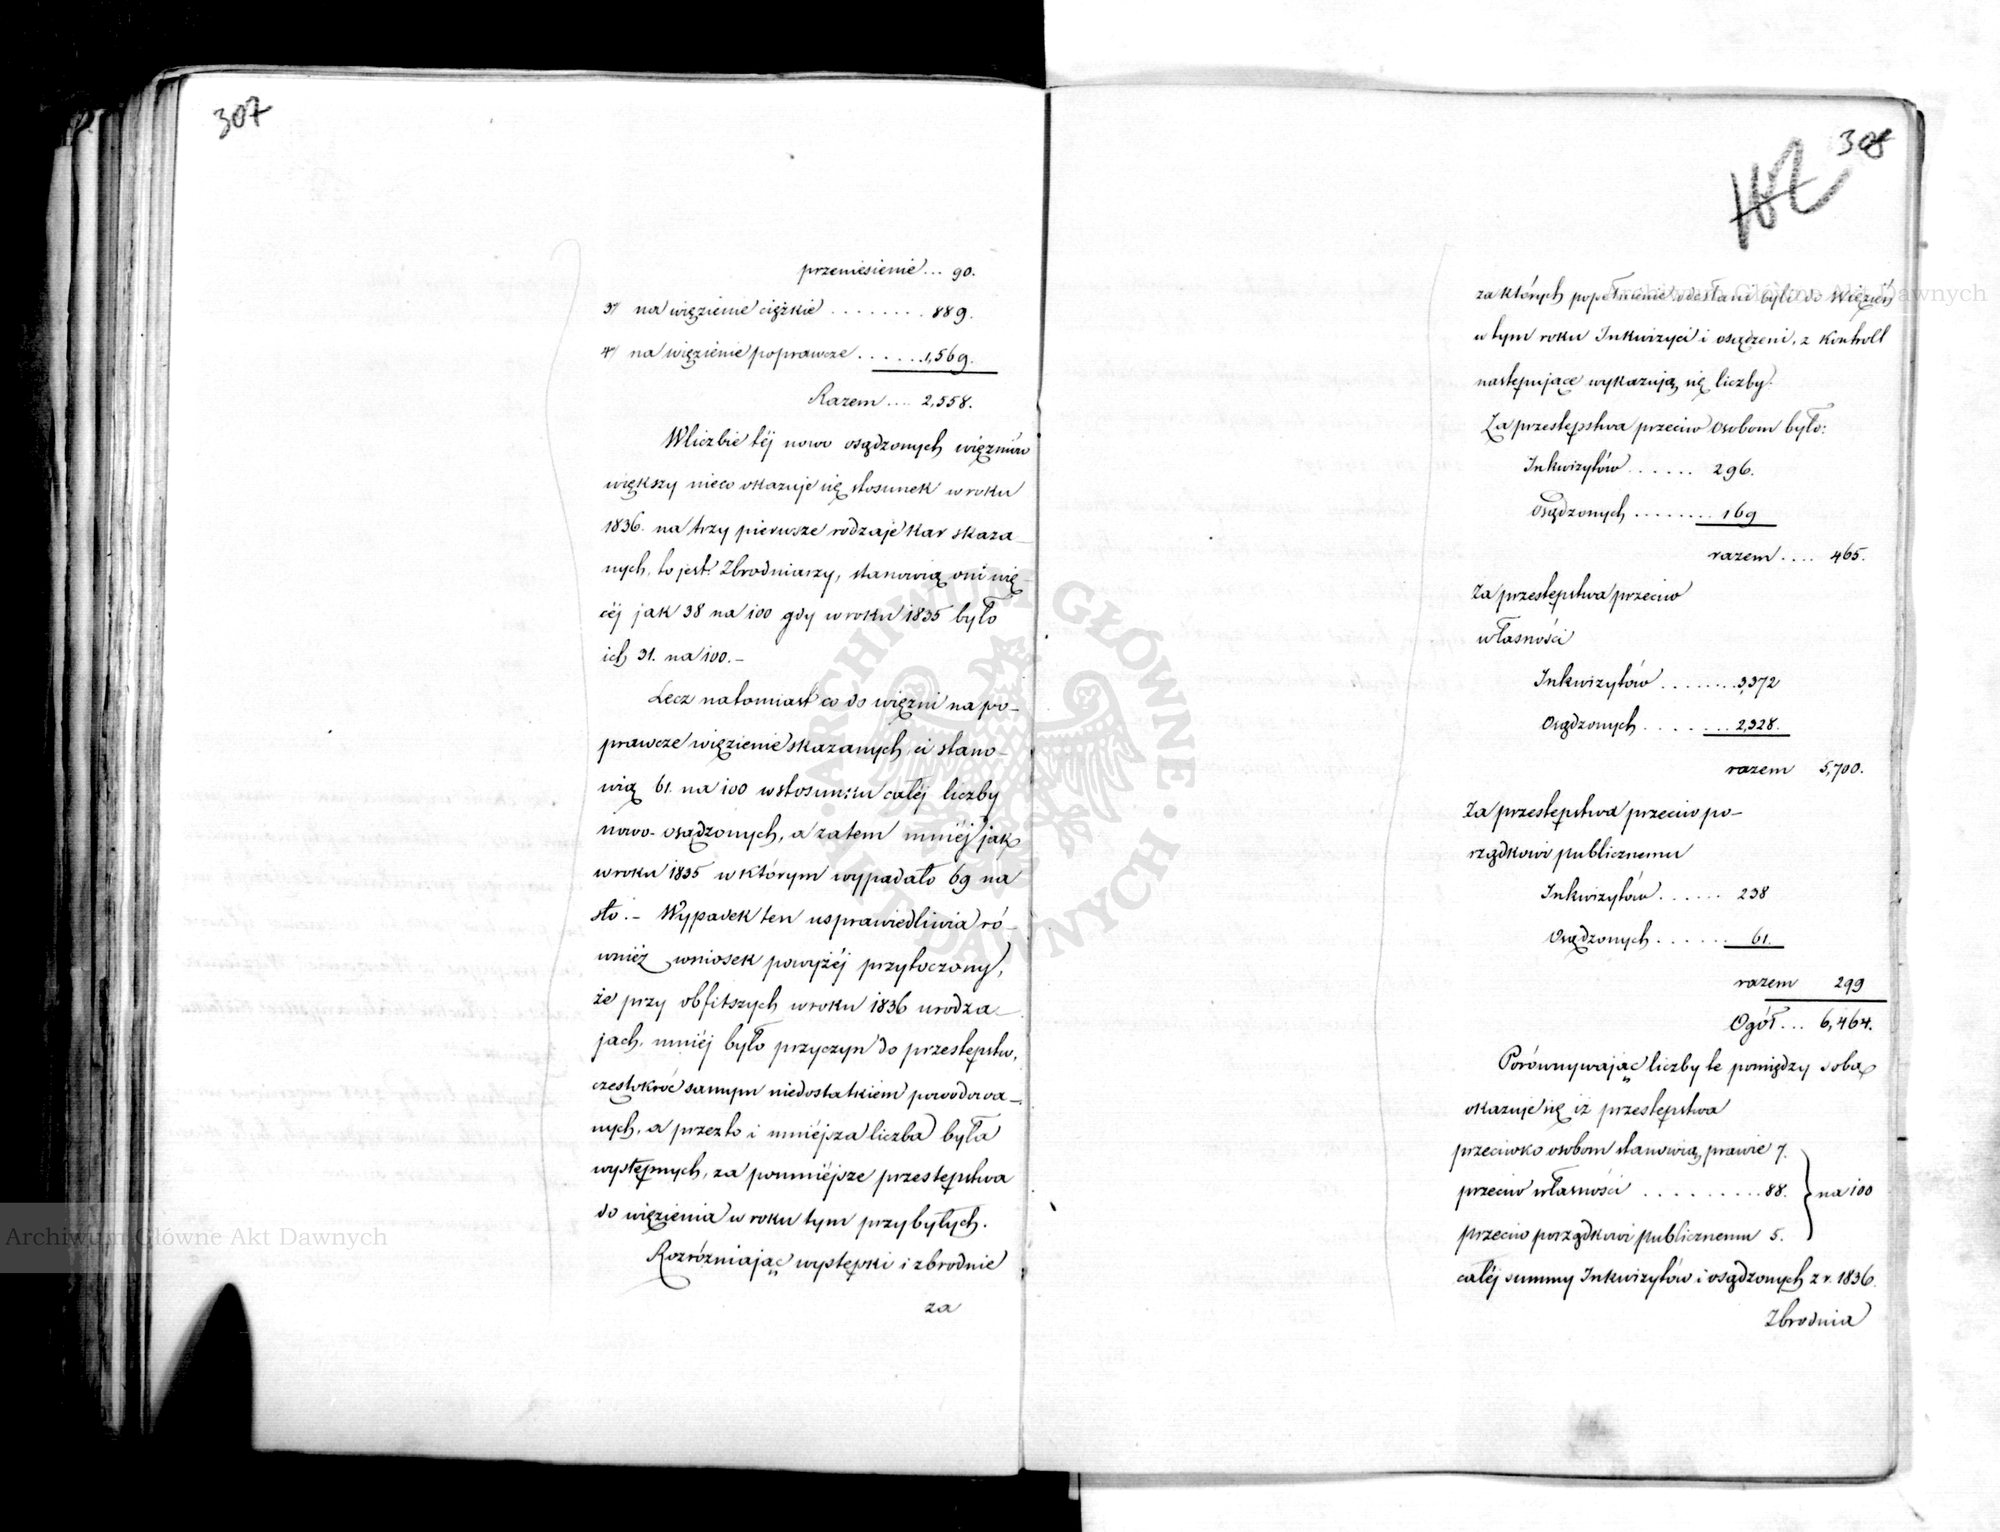 307
przeniesienie ... 90.
3/ na więzienie ciężkie ........ 889.
4/ na więzienie poprawcze ...... 1,569.
Razem .... 2,558.
W liczbie téj nowo osądzonych więzniów
większy nieco okazuje się stosunek w roku
1836. na trzy pierwsze rodzaje kar skaza-
nych, to jest: Zbrodniarzy, stanowią oni wię-
céj jak 38 na 100 gdy w roku 1835 było
ich 31. na 100.-
Lecz natomiast co do więzni na po-
prawcze więzienie skazanych, ci stano-
wią 61. na 100 w stosunku całéj liczby
nowo-osądzonych, a zatem mniéj jak
w roku 1835 w którym wypadało 69 na
sto.- Wypadek ten usprawiedliwia ró-
wnież wniosek powyżéj przytoczony,
że przy obfitszych w roku 1836 urodza-
jach, mniéj było przyczyn do przestępstw,
częstokroć samym niedostatkiem powodowa-
nych, a przezto i mniéjsza liczba była
występnych, za pomniéjsze przestępstwa
do więzienia w roku tym przybyłych.
Rozróżniając występki i zbrodnie
za
308
za których popełnienie odesłani byli do Więzień
w tym roku Inkwizyci i osądzeni, z kontroll
następujące wykazują się liczby.
Za przestępstwa przeciw Osobom było:
Inkwizytów ...... 296.
Osądzonych ........ 169
razem .... 465.
Za przestępstwa przeciw
własności
Inkwizytów ........ 3,372
Osądzonych ........ 2,328.
razem 5,700.
Za przestępstwa przeciw po-
rządkowi publicznemu
Inkwizytów ...... 238
Osądzonych ...... 61.
razem 299
Ogół ... 6,464.
Porównywając liczby te pomiędzy sobą
okazuje się iż przestępstwa
przeciwko osobom stanowią prawie 7.
przeciw własności .......... 88. } na 100
przeciw porządkowi publicznemu 5.
całéj summy Inkwizytów i osądzonych z r. 1836.
Zbrodnia
Archiwum Główne Akt Dawnych
Archiwum Główne Akt Dawnych
ARCHIWUM GŁÓWNE AKT DAWNYCH